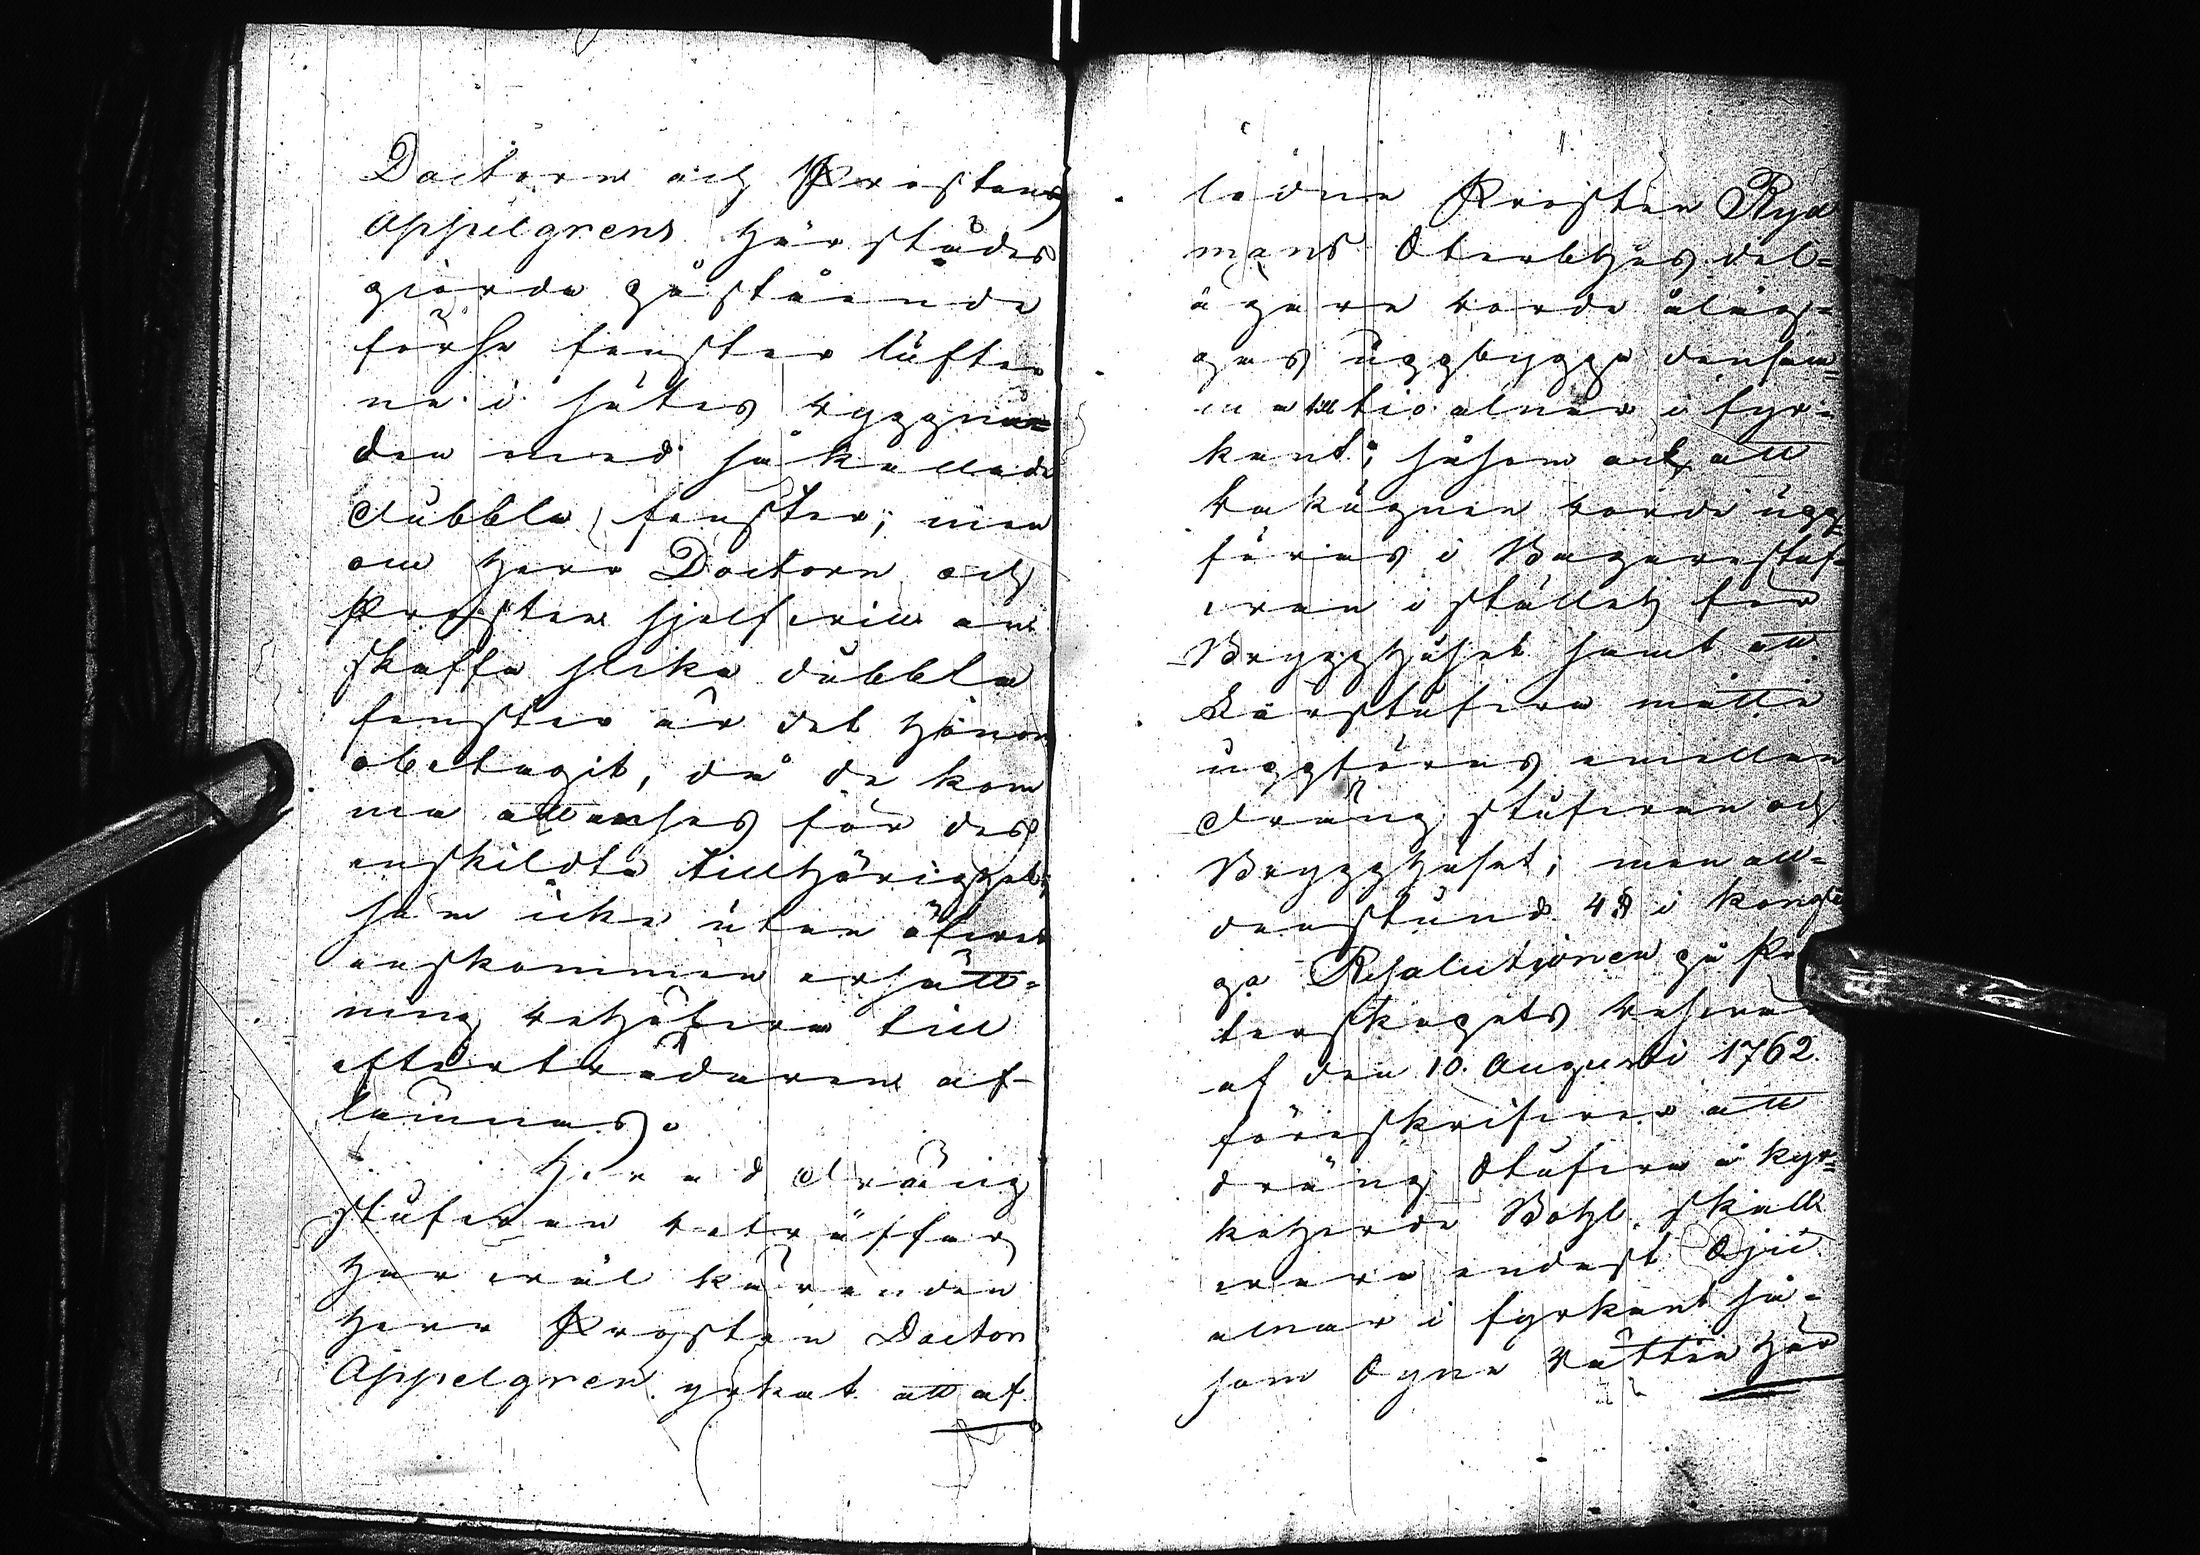 Doctorn och Prosten
Appelgrens härstädes
gjorda påstående
förse fenster lufter
ne i sätes byggna=
den med så kallade
dubbla fenster; men
om Herr Doctorn och
Prosten sjelf vill an
skaffa slika dubbla
fenster är det honom
obetagit, då de kom
ma att anses för des
enskildta tillhörighet;
som icke utan öfver
enskommen ersätt=
ning behöfva till
efterträdaren af
lämnas.
Hvad dräng
stufvan beträffar
har väl käranden
Herr Prosten Doctor
Appelgren yrkat att af
lidne Prosten Ryd
mans Sterbhus del=
ägare borde åläg=
gas uppbygga densam=
ma till tio alnar i fyr=
kant; såsom ock att
bakugnen borde upp
föras i Bagarestuf=
van i stället för
Brygghuset samt att
Körstufva måtte
uppföras emellan
dräng stufvan och
Brygghuset; men all=
denstund 4 § i Kongli
ga Resolutionen på Pre
terskapets besvär
af den 10. Augusti 1762
föreskrifver att
dräng Stufva å kyr=
koherde Bohl. skall
vara endast Sju
alnar i fyrkant så=
som Syne Rätten här